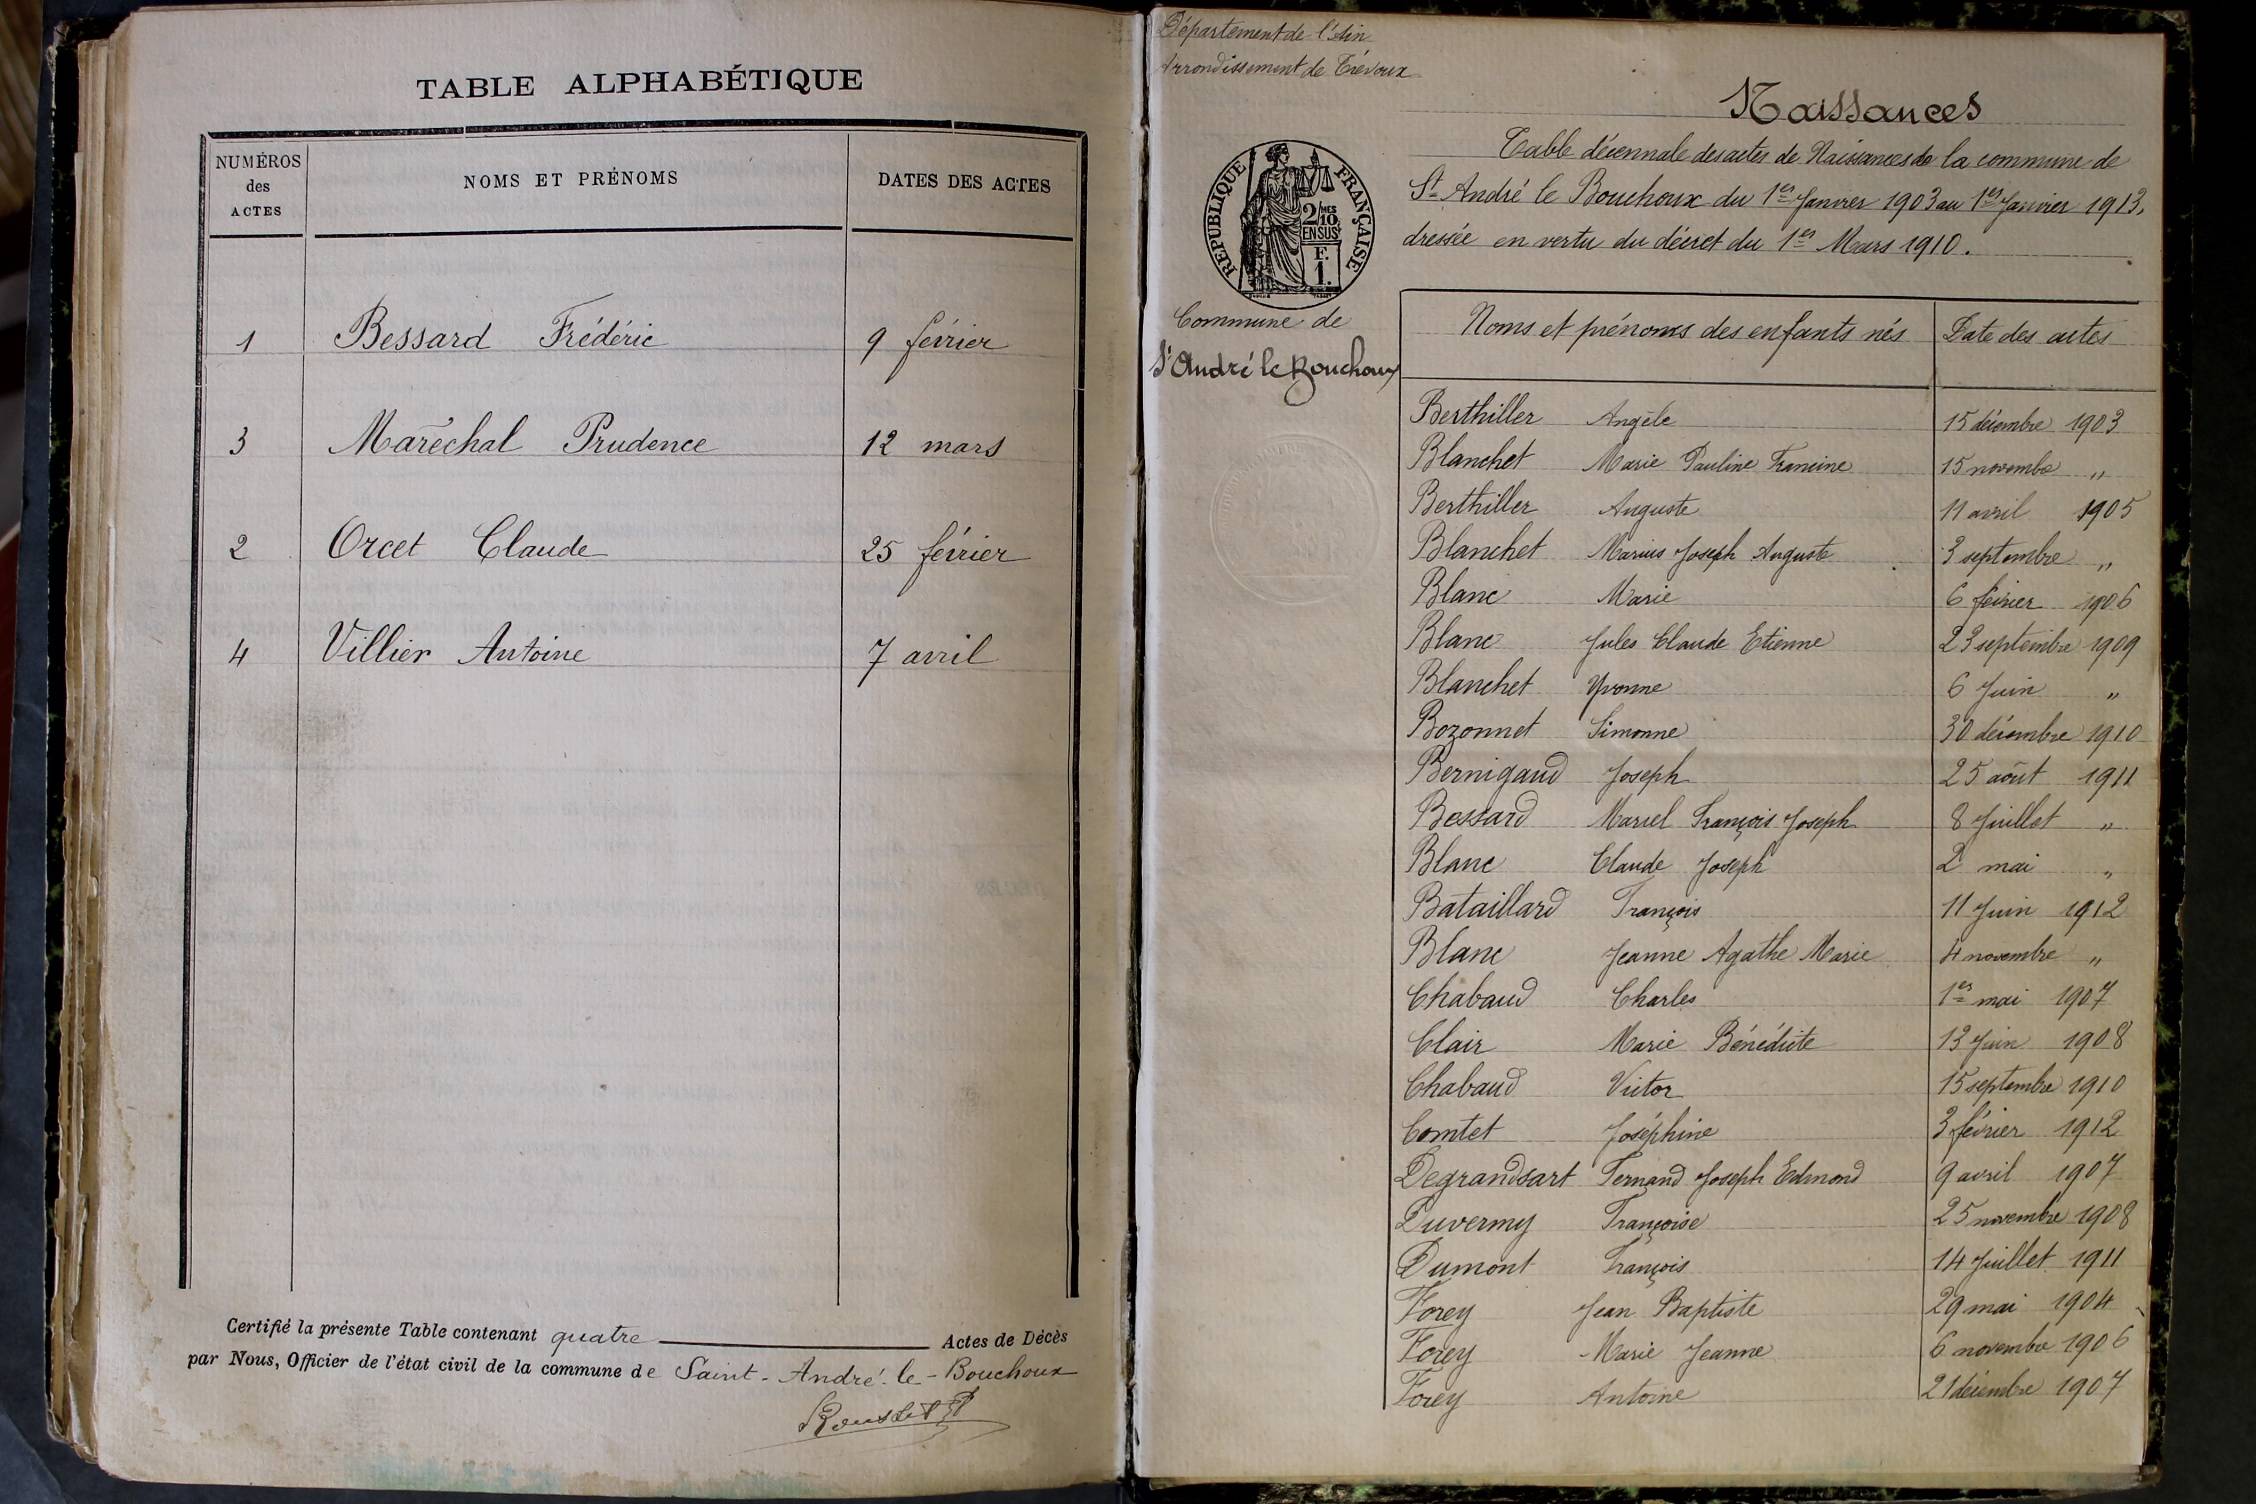 TABLE ALPHABÉTIQUE
NUMÉROS des ACTES
NOMS ET PRÉNOMS
DATES DES ACTES
1 Bessard Frédéric 9 février
3 Maréchal Prudence 12 mars
2 Orcet Claude 25 février
4 Villier Antoine 7 avril
Certifié la présente Table contenant quatre Actes de Décès
par Nous, Officier de l'état civil de la commune de Saint-André-le-Bouchoux
Département de l'Ain
Arrondissement de Trévoux
RÉPUBLIQUE FRANÇAISE
2/10 MES
EN SUS
F.
1.
Commune de
St André le Bouchoux
Naissances
Table décennale des actes de Naissances de la commune de
St André le Bouchoux du 1er Janvier 1903 au 1er Janvier 1913,
dressée en vertu du décret du 1er Mars 1910.
Noms et prénoms des enfants nés Date des actes
Berthiller Angèle 15 décembre 1903
Blanchet Marie Pauline Francine 15 novembre "
Berthiller Auguste 11 avril 1905
Blanchet Marius Joseph Auguste 3 septembre "
Blanc Marie 6 février 1906
Blanc Jules Claude Etienne 23 septembre 1909
Blanchet Yvonne 6 Juin "
Bozonnet Simonne 30 décembre 1910
Bernigaud Joseph 25 août 1911
Bessard Marcel François Joseph 8 Juillet "
Blanc Claude Joseph 2 mai "
Bataillard François 11 Juin 1912
Blanc Jeanne Agathe Marie 4 novembre "
Chabaud Charles 1er mai 1907
Clair Marie Bénédicte 13 Juin 1908
Chabaud Victor 15 septembre 1910
Comtet Joséphine 3 février 1912
Degrandsart Fernand Joseph Edmond 9 avril 1907
Duvermy Françoise 25 novembre 1908
Dumont François 14 Juillet 1911
Forey Jean Baptiste 29 mai 1904
Forey Marie Jeanne 6 novembre 1906
Forey Antoine 21 décembre 1907